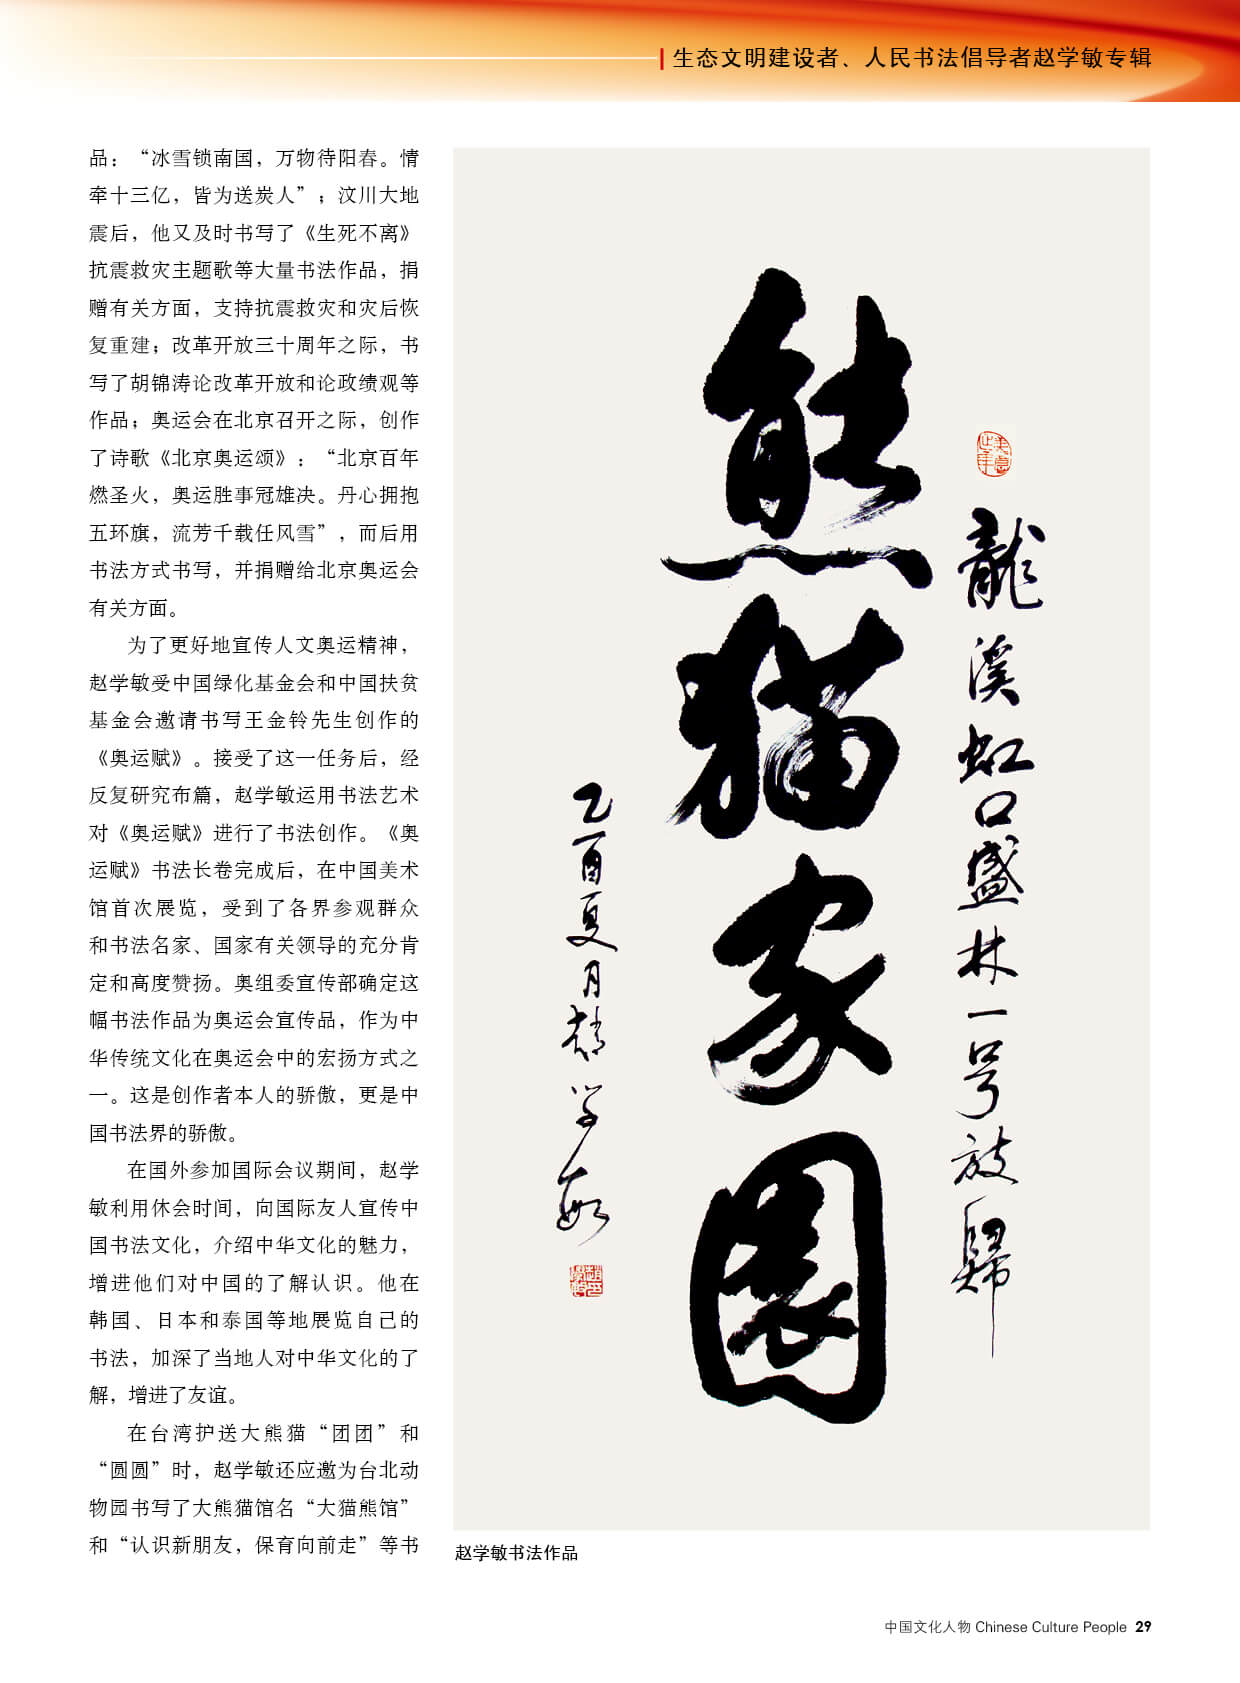 生态文明建设者、人民书法倡导者赵学敏专辑
品：“冰雪锁南国，万物待阳春。情
牵十三亿，皆为送炭人”；汶川大地
震后，他又及时书写了《生死不离》
抗震救灾主题歌等大量书法作品，捐
赠有关方面，支持抗震救灾和灾后恢
复重建；改革开放三十周年之际，书
写了胡锦涛论改革开放和论政绩观等
作品；奥运会在北京召开之际，创作
了诗歌《北京奥运颂》：“北京百年
燃圣火，奥运胜事冠雄决。丹心拥抱
五环旗，流芳千载任风雪”，而后用
书法方式书写，并捐赠给北京奥运会
有关方面。
为了更好地宣传人文奥运精神，
赵学敏受中国绿化基金会和中国扶贫
基金会邀请书写王金铃先生创作的
《奥运赋》。接受了这一任务后，经
反复研究布篇，赵学敏运用书法艺术
对《奥运赋》进行了书法创作。《奥
运赋》书法长卷完成后，在中国美术
馆首次展览，受到了各界参观群众
和书法名家、国家有关领导的充分肯
定和高度赞扬。奥组委宣传部确定这
幅书法作品为奥运会宣传品，作为中
华传统文化在奥运会中的宏扬方式之
一。这是创作者本人的骄傲，更是中
国书法界的骄傲。
在国外参加国际会议期间，赵学
敏利用休会时间，向国际友人宣传中
国书法文化，介绍中华文化的魅力，
增进他们对中国的了解认识。他在
韩国、日本和泰国等地展览自己的
书法，加深了当地人对中华文化的了
解，增进了友谊。
在台湾护送大熊猫“团团”和
“圆圆”时，赵学敏还应邀为台北动
物园书写了大熊猫馆名“大猫熊馆”
和“认识新朋友，保育向前走”等书
龍溪虹口盛林一号放歸
熊猫家園
乙酉夏月趙学敏
赵学敏书法作品
中国文化人物 Chinese Culture People 29